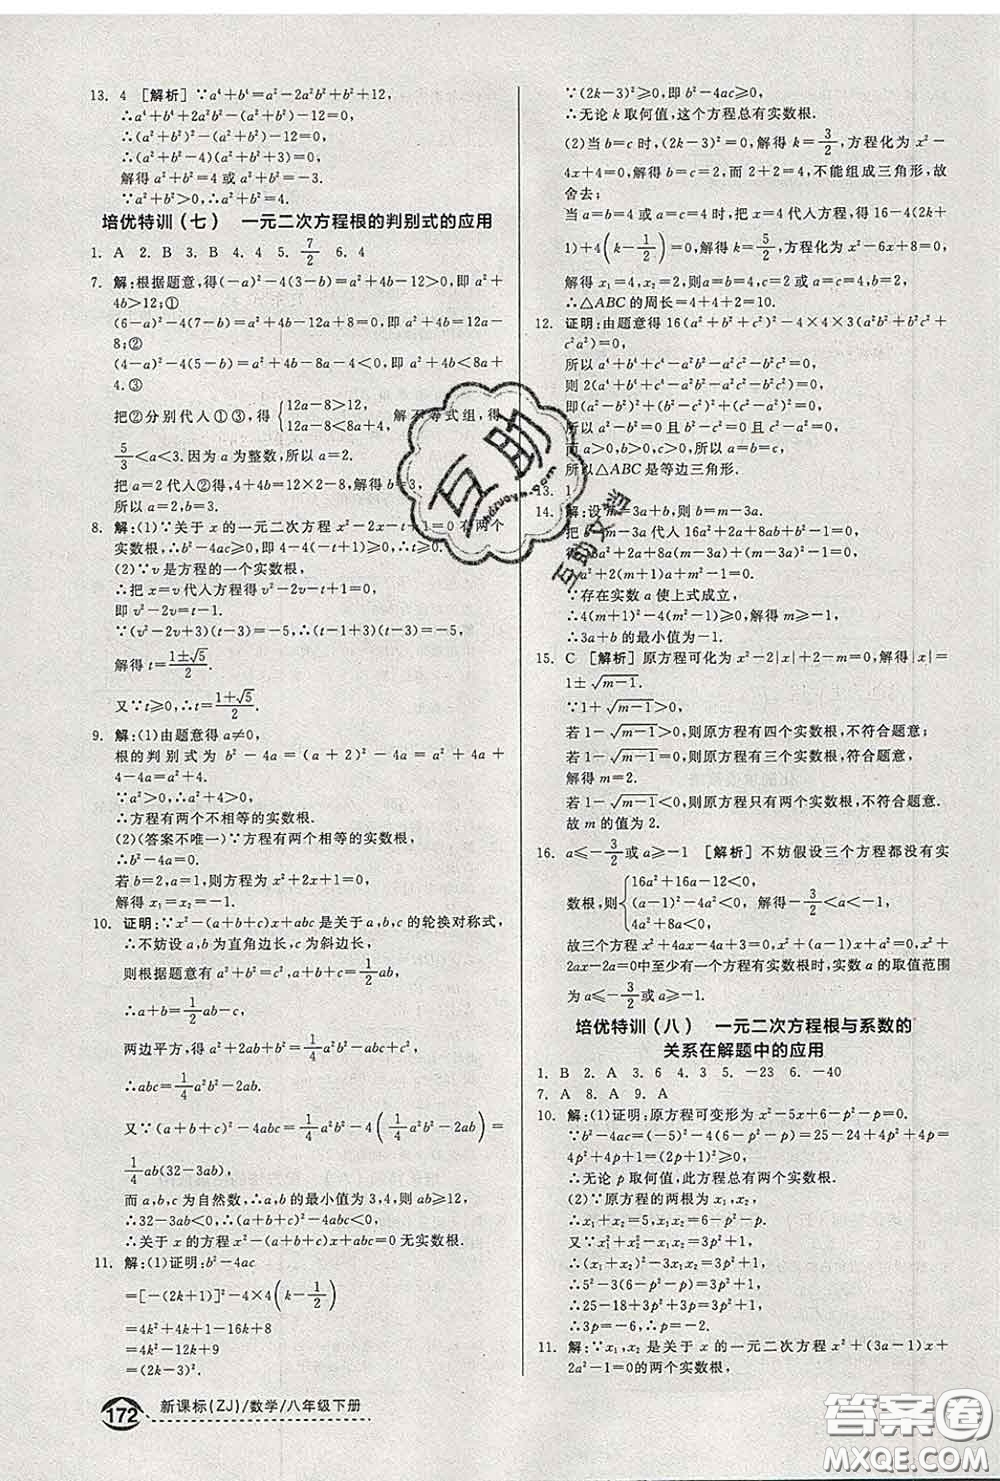 13. 4 [解析] ∵a⁴+b⁴=a²-2a²b²+b²+12,
∴a⁴+b⁴+2a²b²-a²-b²-12=0,
∴(a²+b²)²-(a²+b²)-12=0,
∴(a²+b²-4)(a²+b²+3)=0,
解得 a²+b²=4 或 a²+b²=-3.
∵a²+b²>0,∴a²+b²=4.
培优特训(七) 一元二次方程根的判别式的应用
1. A 2. B 3. B 4. 4 5. 7/2 6. 4
7. 解:根据题意,得(-a)²-4(3-b)=a²+4b-12>0,即 a²+
4b>12;①
(6-a)²-4(7-b)=a²+4b-12a+8=0,即 a²+4b=12a-
8;②
(4-a)²-4(5-b)=a²+4b-8a-4<0,即 a²+4b<8a+
4.③
把②分别代入①③,得{12a-8>12, 12a-8<8a+4, 解不等式组,得
5/3<a<3.因为 a 为整数,所以 a=2.
把 a=2 代入②得,4+4b=2×12-8,解得 b=3,
所以 a=2,b=3.
8. 解:(1)∵关于 x 的一元二次方程 x²-2x-t+1=0 有两个
实数根,∴Δ=(-2)²-4(-t+1)=4t≥0,∴t≥0.
(2)∵v 是方程的一个实数根,
∴把 x=v 代入方程得 v²-2v-t+1=0,
即 v²-2v=t-1.
∵(v²-2v+3)(t-3)=-5,∴(t-1+3)(t-3)=-5,
解得 t=(1±√5)/2.
又∵t≥0,∴t=(1+√5)/2.
9. 解:(1)由题意得 a≠0,
根的判别式为 b²-4a=(a+2)²-4a=a²+4a+
4-4a=a²+4.
∵a²>0,∴a²+4>0,
∴方程有两个不相等的实数根.
(2)(答案不唯一)∵方程有两个相等的实数根,
∴Δ=b²-4a=0,
若 b=2,a=1,则方程为 x²+2x+1=0,
解得 x₁=x₂=-1.
10. 证明:∵x²-(a+b+c)x+abc 是关于 a,b,c 的轮换对称式,
∴不妨设 a,b 为直角边长,c 为斜边长,
则根据题意有 a²+b²=c²,a+b+c=1/2ab,
∴a+b=1/2ab-c,
两边平方,得 a²+2ab+b²=1/4a²b²-abc+c²,
∴abc=1/4a²b²-2ab.
又∵(a+b+c)²-4abc=1/4a²b²-4(1/4a²b²-2ab)=
1/4ab(32-3ab),
而 a,b,c 为自然数,∴a,b 的最小值为 3,4,∴ab≥12,
∴32-3ab<0,∴(a+b+c)²-4abc<0,
∴关于 x 的方程 x²-(a+b+c)x+abc=0 无实数根.
11. 解:(1)证明:b²-4ac
=[-(2k+1)]²-4×4(k-1/2)
=4k²+4k+1-16k+8
=4k²-12k+9
=(2k-3)².
∵(2k-3)²≥0,即 b²-4ac≥0,
∴无论 k 取何值,这个方程总有实数根.
(2)当 b=c 时,(2k-3)²=0,解得 k=3/2,方程化为 x²-
4x+4=0,解得 b=c=2,而 b+c=a,不能组成三角形,故
舍去;
当 a=b=4 或 a=c=4 时,把 x=4 代入方程,得 16-4(2k
+1)+4(k-1/2)=0,解得 k=5/2,方程化为 x²-6x+8=0,
解得 x₁=4,x₂=2,则 a=b=4,c=2 或 a=c=4,b=2,
∴△ABC 的周长=4+4+2=10.
12. 证明:由题意得 16(a²+b²+c²)²-4×4×3(a²b²+b²c²+
c²a²)=0,
所以 a⁴+b⁴+c⁴-a²b²-a²c²-b²c²=0,
则 2(a⁴+b⁴+c⁴-a²b²-a²c²-b²c²)=0,
即(a²-b²)²+(b²-c²)²+(c²-a²)²=0,
所以 a²-b²=0 且 b²-c²=0 且 c²-a²=0.
而 a>0,b>0,c>0,所以 a=b=c,
所以△ABC 是等边三角形.
13. 1
14. 解:设m=3a+b,则 b=m-3a.
把 b=m-3a 代入 2a²+2a+8ab+b²+b=0,
得2a²+2a+8a(m-3a)+(m-3a)²+(m-3a)=0,
a²+(2m-1)a+m²+m=0.
∵存在实数 a 使上式成立,
∴4(m+1)²-4(m²-1)≥0,解得 m≥-1.
∴3a+b 的最小值为-1.
15. C [解析] 原方程可化为 x²-2|x|+2-m=0,解得|x|=
1±√(m-1).
∵1+√(m-1)>0,
若 1-√(m-1)>0,则原方程有四个实数根,不符合题意;
若 1-√(m-1)=0,则原方程有三个实数根,符合题意,
解得 m=2.
若 1-√(m-1)<0,则原方程只有两个实数根,不符合题意.
故 m 的值为 2.
16. a≤-3/2或 a≥-1 [解析] 不妨假设三个方程都没有实
数根,则{16a²+16a-12<0, (a-1)²-4a²<0, 解得-3/2<a<-1. 4a²+8a<0,
故三个方程 x²+4ax-4a+3=0,x²+(a-1)x+a²=0,x²
+2ax-2a=0中至少有一个方程有实数根时,实数 a 的取值范围
为 a≤-3/2或 a≥-1.
培优特训(八) 一元二次方程根与系数的
关系在解题中的应用
1. B 2. A 3. 6 4. 3 5. -23 6. -40
7. A 8. A 9. A
10. 解:(1)证明:原方程可变形为 x²-5x+6-p²-p=0.
∵b²-4ac=(-5)²-4(6-p²-p)=25-24+4p²+
4p=4p²+4p+1=(2p+1)²≥0,
∴无论 p 取何值,此方程总有两个实数根.
(2)∵原方程的两根为 x₁,x₂,
∴x₁+x₂=5,x₁x₂=6-p²-p.
又∵x₁²+x₂²-x₁x₂=3p²+1,
∴(x₁+x₂)²-3x₁x₂=3p²+1,
∴5²-3(6-p²-p)=3p²+1,
∴25-18+3p²+3p=3p²+1,
∴3p=-6,∴p=-2.
11. 解:∵x₁,x₂ 是关于 x 的一元二次方程 x²+(3a-1)x+
2a²-1=0的两个实数根,
172 新课标(ZJ)/数学/八年级下册
互助
huzuoye.com
互助文档
答案圈
MXQE.COM